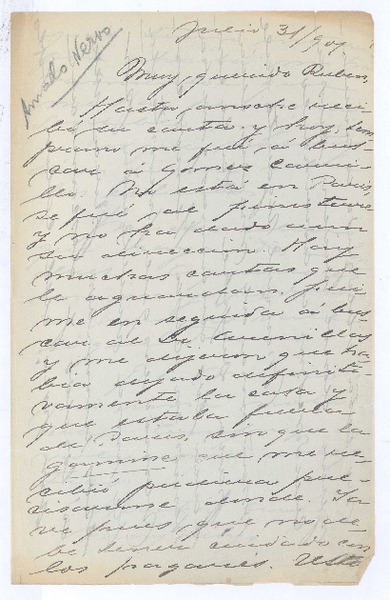 Amado Nervo
Julio 31/901.
Muy querido Ruben,
Hasta anoche reci-
bí su carta y hoy tem
prano me fuí á bus-
car á Gomez Carri-
llo. No está en París,
se fué al
y no ha dado aun
su direccion. Hay
muchas cartas que
le aguardan. Fuí
me en seguida á bus
car al Dr.
y me dijeron que ha-
bia dejado definiti-
vamente la casa y
que estaba fuera
de Paris, sin que la
que me re-
cibió pudiera pre-
cisarme donde. Ya
ve pues, que no de-
be tener cuidado con
los pagarés.